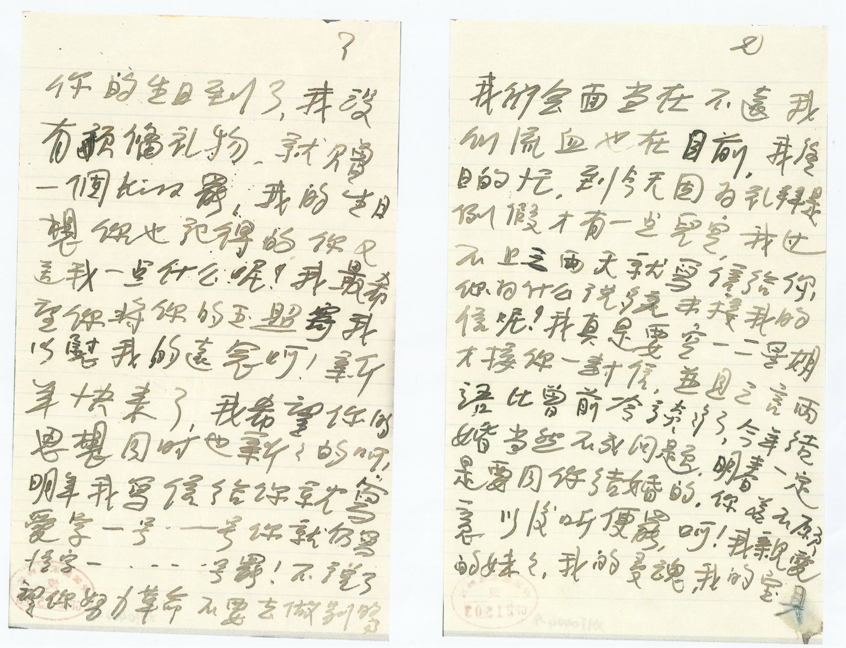 你的生日到了,我没
有预备礼物、就赠
一個 罢,我的生日
想你也记得的你
送我一点什么呢?我最希
望你将你的玉照寄我
以慰我的遠念呵!新
年快来了,我希望你的
思想同时也新了的呵,
明年我写信给你就写
爱字一号…一号你就仍写
字一……号罢!不说了
望你努力革命不要去做别的
七
我们会面当在不遠我
们流血也在目前,我
日的忙,到今天因为礼拜是
例假才有一点空,我
不上三两天就写信给你,
你为什么说 未接我的
信呢?我真是要空一二星期
才接你一封信,並且三言两
语比曾前冷 了,今年结
婚当然不成问题.明春一定
是要同你结婚的,你若不愿
意 以后听便罢,呵!我親爱
的妹妹,我的灵魂,我的宝贝